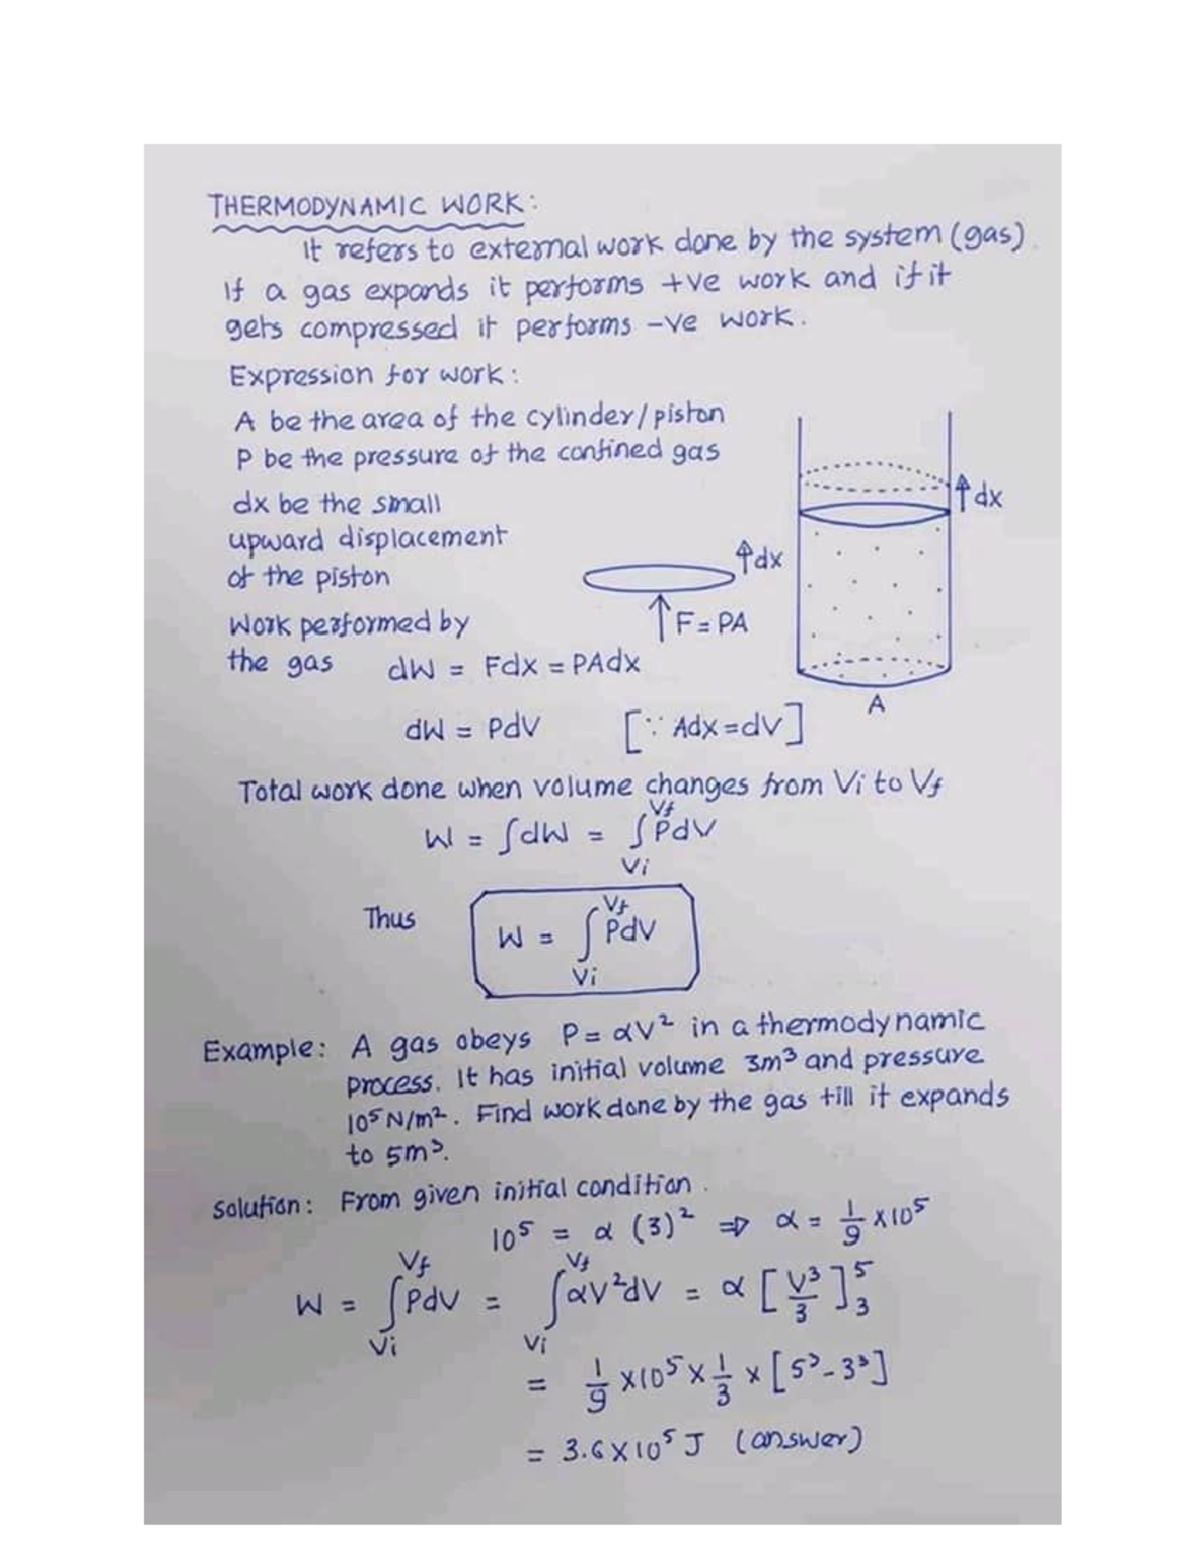 THERMODYNAMIC WORK:
It refers to external work done by the system (gas).
If a gas expands it performs +ve work and if it
gets compressed it performs -ve work.
Expression for work:
A be the area of the cylinder/piston
P be the pressure of the confined gas
dx be the small
upward displacement
of the piston
↑dx
↑dx
↑F = PA
A
Work performed by
the gas dW = Fdx = PAdx
dW = PdV [∵ Adx = dV]
Total work done when volume changes from Vi to Vf
W = ∫dW = ∫_{Vi}^{Vf} PdV
Thus W = ∫_{Vi}^{Vf} PdV
Example: A gas obeys P = αV² in a thermodynamic
process. It has initial volume 3m³ and pressure
10⁵ N/m². Find work done by the gas till it expands
to 5m³.
Solution: From given initial condition.
10⁵ = α (3)² ⇒ α = 1/9 × 10⁵
W = ∫_{Vi}^{Vf} PdV = ∫_{Vi}^{Vf} αV²dV = α [V³/3]_{3}^{5}
= 1/9 × 10⁵ × 1/3 × [5³ - 3³]
= 3.6 × 10⁵ J (answer)